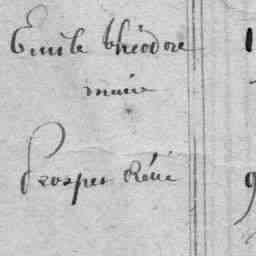 Emile théodore
marie
Prosper Réné